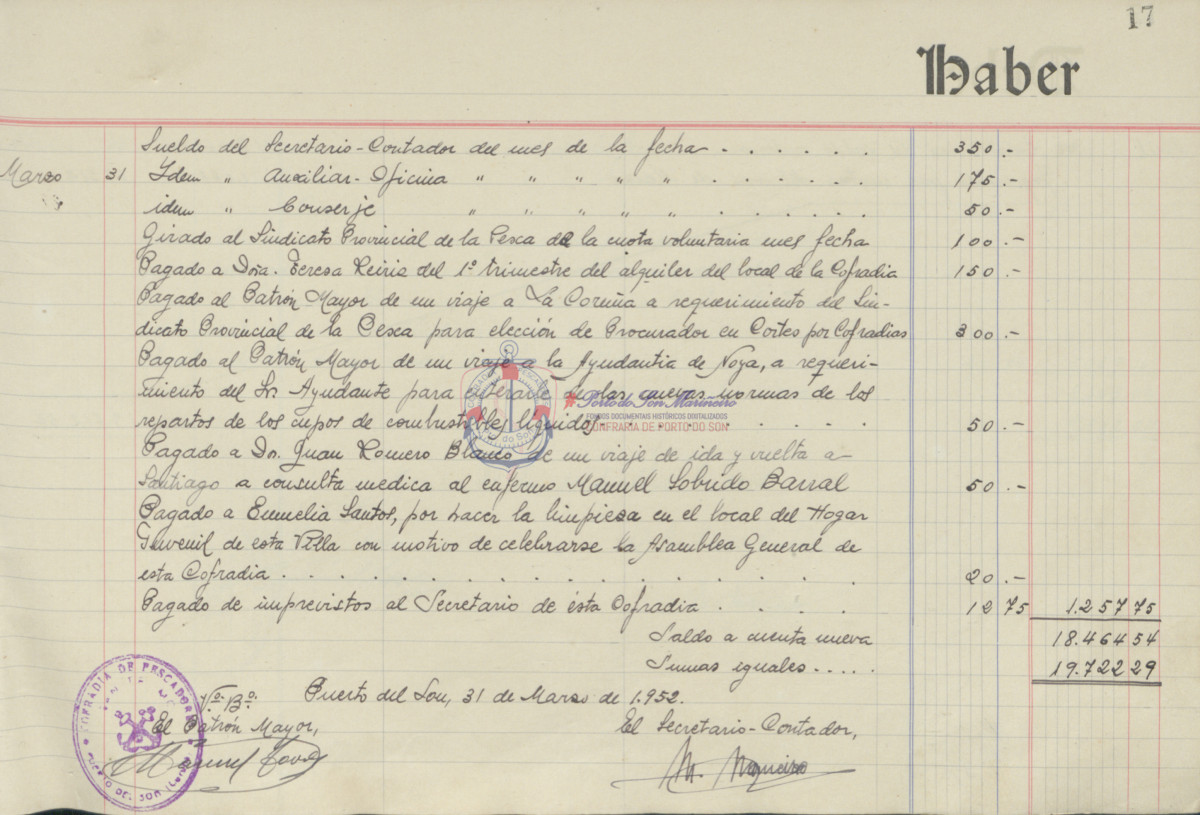 17
Haber
Sueldo del Secretario-Contador del mes de la fecha . . . . . . 350.-
Marzo 31 Idem " Auxiliar-Oficina " " " " " . . . . . . 175.-
idem " Conserje " " " " " . . . . . . 50.-
Girado al Sindicato Provincial de la Pesca de la cuota voluntaria mes fecha 100.-
Pagado a Dña. Teresa Reiria del 1º trimestre del alquiler del local de la Cofradia 150.-
Pagado al Patrón Mayor de un viaje a La Coruña a requerimiento del Sin-
dicato Provincial de la Pesca para elección de Procurador en Cortes por Cofradias 300.-
Pagado al Patrón Mayor de un viaje a la Ayudantia de Noya, a requeri-
miento del Sr. Ayudante para enterarle de las nuevas normas de los
repartos de los cupos de combustibles líquidos . . . . . . 50.-
Pagado a Dn. Juan Romero Blanco de un viaje de ida y vuelta a
Santiago a consulta medica al enfermo Manuel Lobrido Barral 50.-
Pagado a Eumelia Santos, por hacer la limpiesa en el local del Hogar
Juvenil de esta Villa con motivo de celebrarse la Asamblea General de
esta Cofradia . . . . . . 20.-
Pagado de imprevistos al Secretario de ésta Cofradia . . . . 12 75 1.257 75
Saldo a cuenta nueva 18.464 54
Sumas iguales ..... 19.722 29
Puerto del Son, 31 de Marzo de 1.952.
Vº. Bº.
El Patrón Mayor,
El Secretario-Contador,
COFRADIA DE PESCADORES
PUERTO DEL SON
Porto do Son Mariñeiro
FONDOS DOCUMENTAIS HISTÓRICOS DIXITALIZADOS
CONFRARIA DE PORTO DO SON